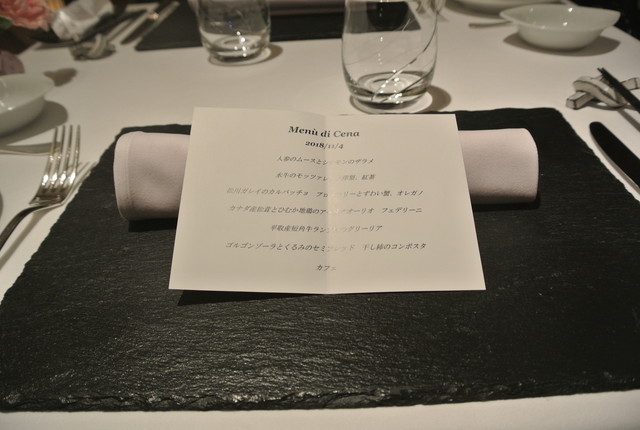 Menù di Cena
2018/11/4
人参のムースと のザラメ
水牛のモッツァレラ 紅茶
カルパッチョ とずわい蟹、オレガノ
カナダ産松茸とひむか地鶏の オーリオ フェデリーニ
平取産短角牛ラン グリーリア
ゴルゴンゾーラとくるみのセミフレッド 干し柿のコンポスタ
カフェ